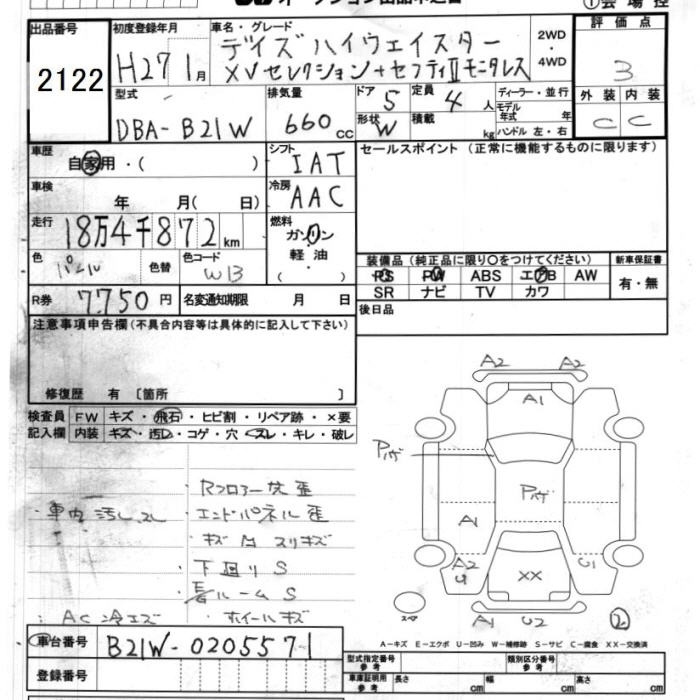 出品番号
2122
初度登録年月
H27 1月
車名・グレード
デイズハイウェイスター
XVセレクション+セフティⅡモニタレス
2WD
・
4WD
評価点
3
外装 内装
C C
型式
DBA-B21W
排気量
660cc
ドア 5
定員 4人
形状 W
積載 kg
ディーラー・並行
モデル年式 年式
ハンドル 左・右
車歴
自家用・( )
シフト
IAT
セールスポイント(正常に機能するものに限ります)
車検
年 月( 日)
冷房
AAC
走行
18万4千872km
燃料
ガソリン
・
軽油
( )
色
パール
色替
色コード
W13
装備品(純正品に限り○をつけてください)
新車保証書
PS PW ABS エアB AW
SR ナビ TV カワ
有・無
R券
7,750円
名変通知期限 月 日
後日品
注意事項申告欄(不具合内容等は具体的に記入して下さい)
修復歴 有 〔箇所 〕
検査員記入欄
FW キズ・飛石・ヒビ割・リペア跡・×要
内装 キズ・汚レ・コゲ・穴・スレ・キレ・破レ
・車内汚レスレ
・エンドパネル歪
キズ スリキズ
・下廻りS
・ルームS
・AC冷エズ
・ホイールキズ
A2 A2
A1
Pハゲ
Pハゲ
A1
A2
U
U1
XX
スペア
A1 U2
2
A-キズ E-エクボ U-凹み W-補修跡 S-サビ C-腐食 XX-交換済
車台番号
B21W-0205571
登録番号
型式指定番号
参考
類別区分番号
参考
車庫証明用
参考
長さ cm
幅 cm
高さ cm